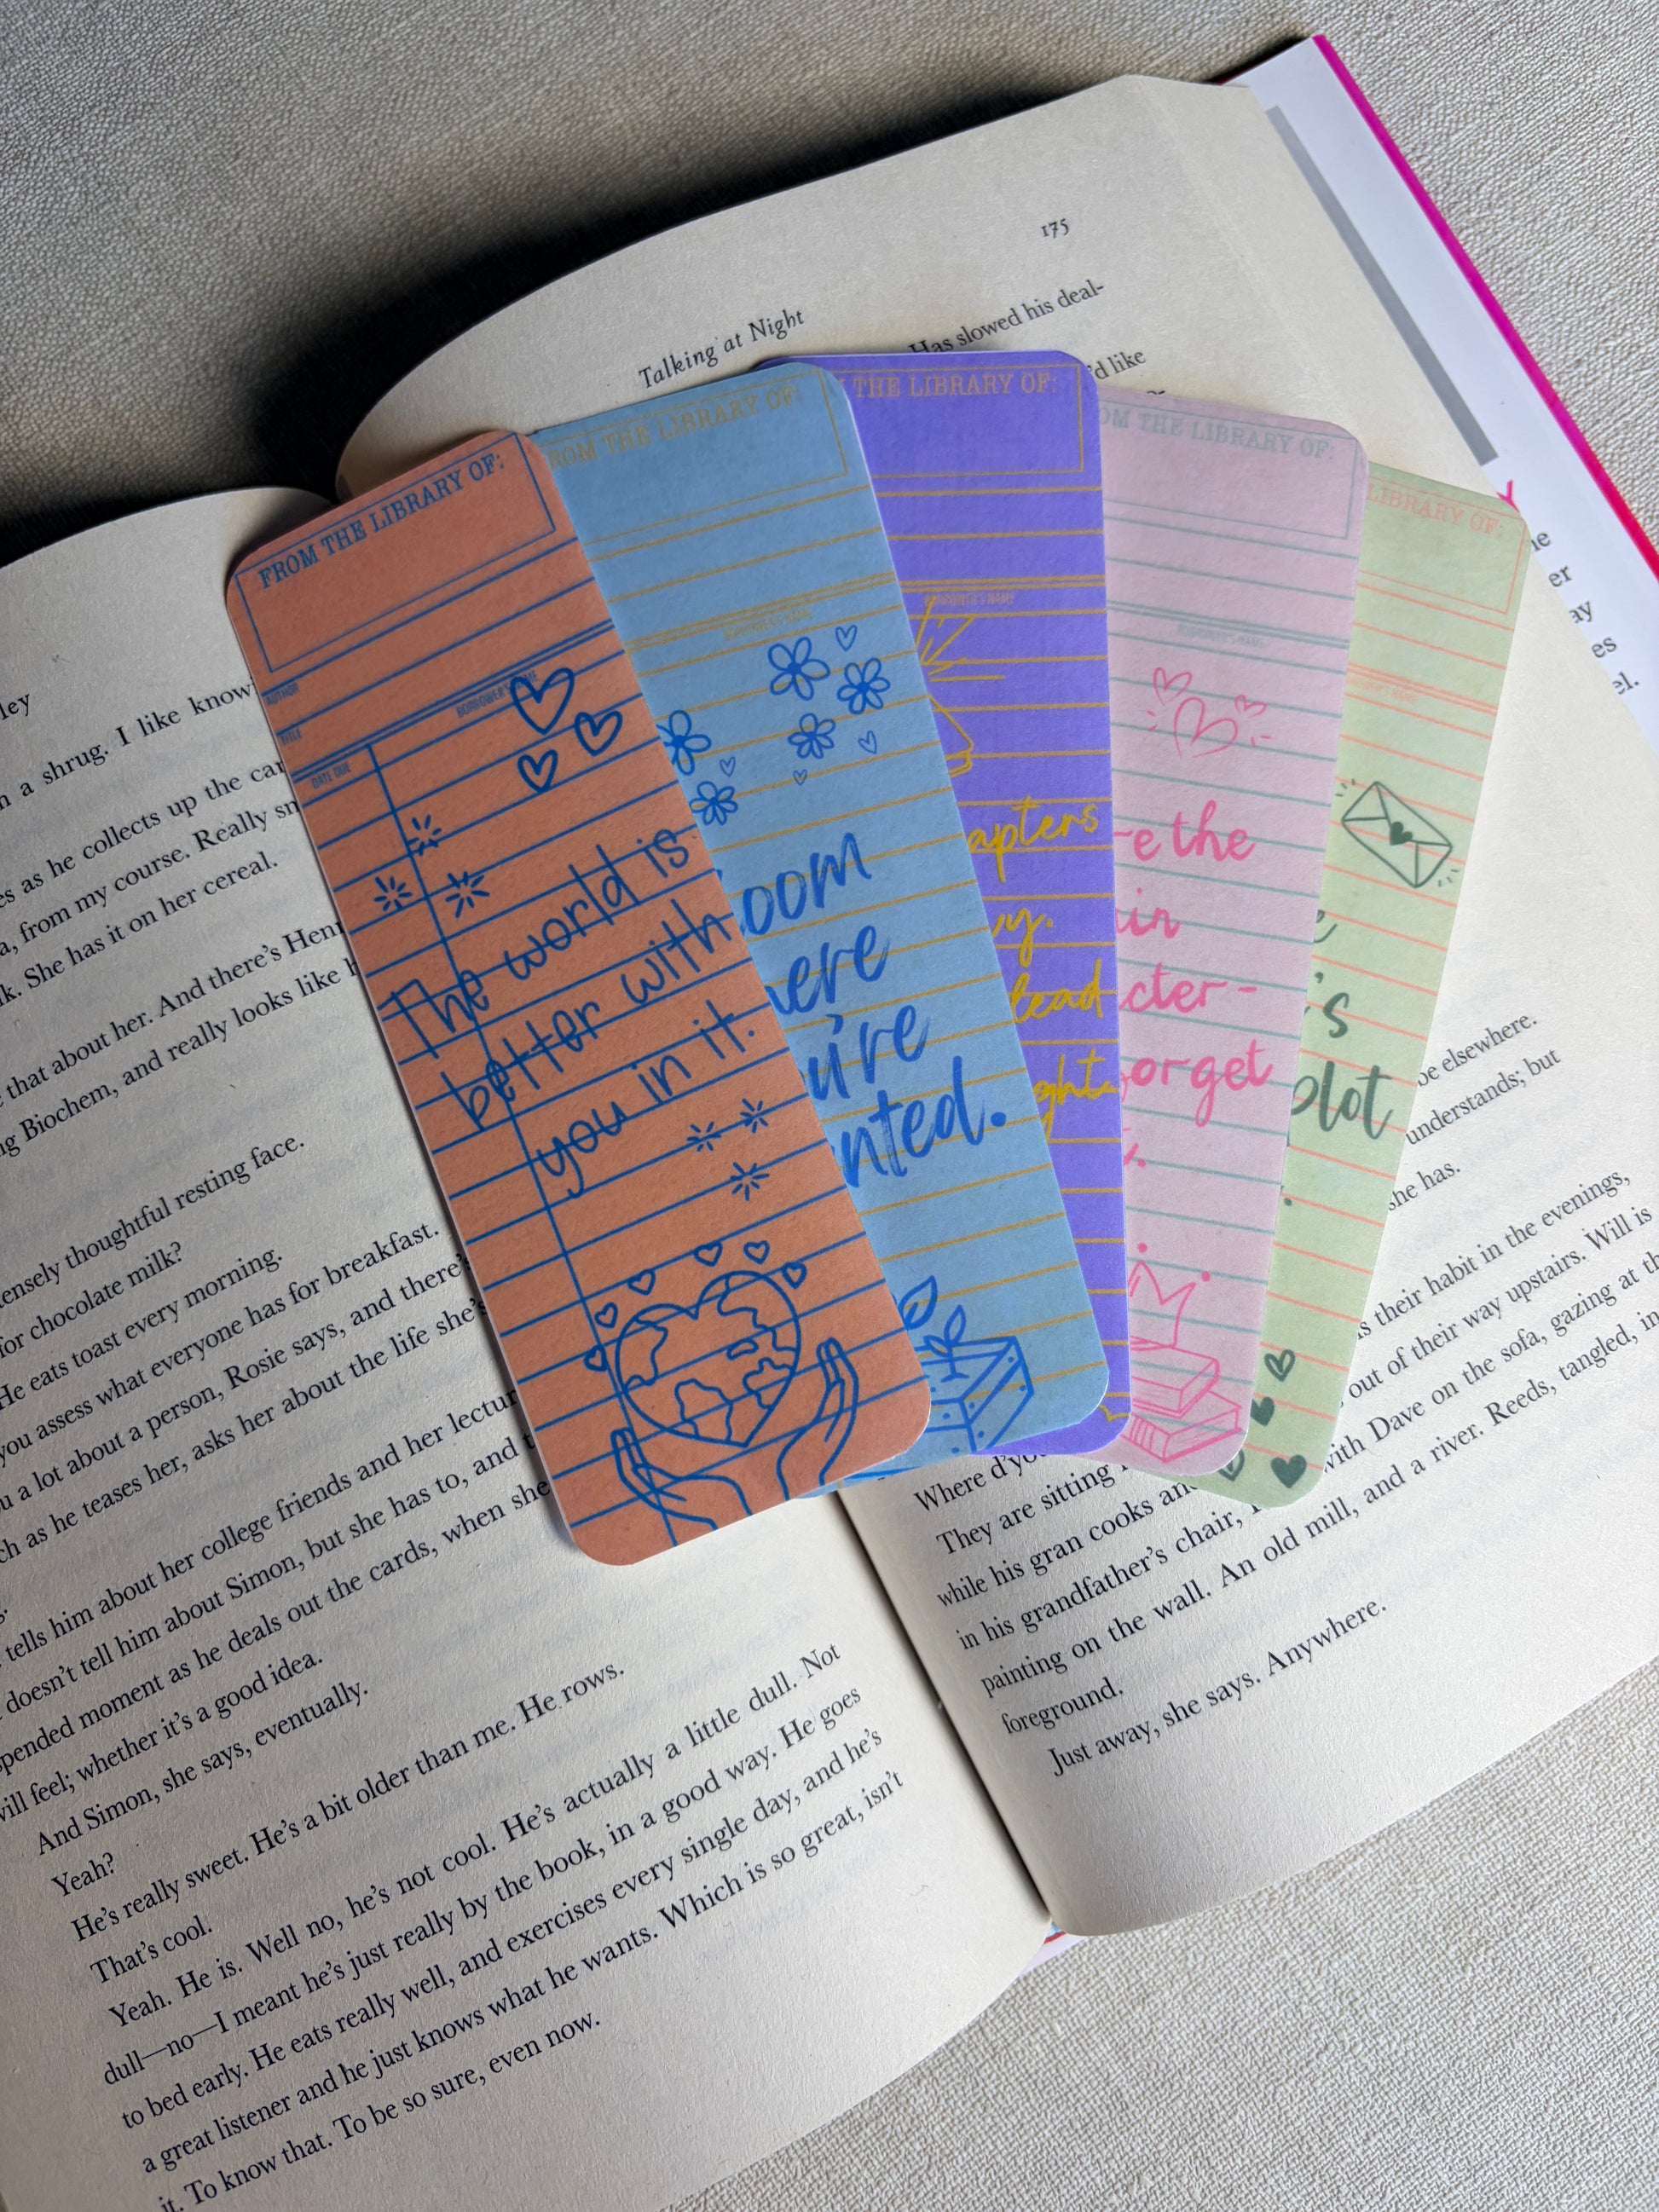 ley
a shrug. I like know
es as he collects up the car
a, from my course. Really sm
k. She has it on her cereal.
that about her. And there's Henr
ng Biochem, and really looks like h
ensely thoughtful resting face.
for chocolate milk?
He eats toast every morning.
you assess what everyone has for breakfast.
u a lot about a person, Rosie says, and there's
ch as he teases her, asks her about the life she's
tells him about her college friends and her lectur
doesn't tell him about Simon, but she has to, and t
spended moment as he deals out the cards, when she
will feel; whether it's a good idea.
And Simon, she says, eventually.
Yeah?
He's really sweet. He's a bit older than me. He rows.
That's cool.
Yeah. He is. Well no, he's not cool. He's actually a little dull. Not
dull—no—I meant he's just really by the book, in a good way. He goes
to bed early. He eats really well, and exercises every single day, and he's
a great listener and he just knows what he wants. Which is so great, isn't
it. To know that. To be so sure, even now.
FROM THE LIBRARY OF:
AUTHOR
TITLE
BORROWER'S NAME
DATE DUE
The world is
better with
you in it.
ROM THE LIBRARY OF:
BORROWER'S NAME
oom
ere
u're
nted.
THE LIBRARY OF:
BORROWER'S NAME
apters
y.
tead
ght
OM THE LIBRARY OF:
e the
in
cter-
orget
LIBRARY OF:
's
plot
175
Talking at Night
Has slowed his deal-
'd like
be elsewhere.
understands; but
she has.
s their habit in the evenings,
out of their way upstairs. Will is
with Dave on the sofa, gazing at th
and a river. Reeds, tangled, in
Where d'yo
They are sitting
while his gran cooks an
in his grandfather's chair,
painting on the wall. An old mill,
foreground.
Just away, she says. Anywhere.
ie
er
ay
es
el.